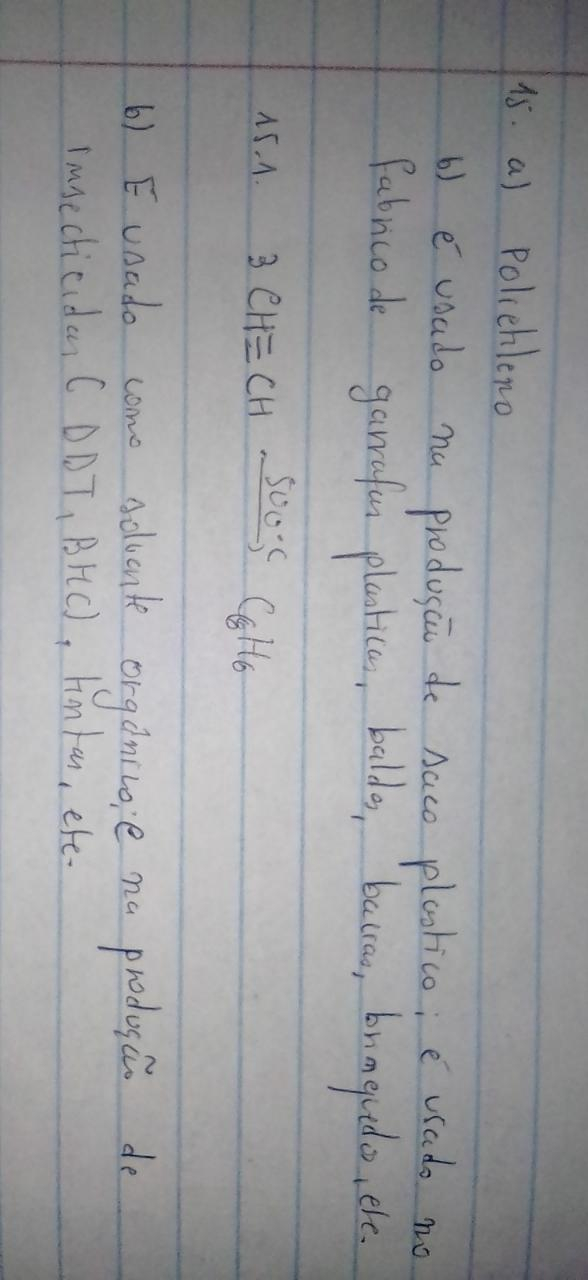 15. a) Polietileno
b) é usado na produção de saco plastico; é usado no
fabrico de garrafas plasticas, baldes, bacias, brinquedos, etc.
15.1. 3 CH≡CH —500°C→ C6H6
b) E usado como solvente orgânico; e na produção de
insecticidas (DDT, BHC), tintas, etc.